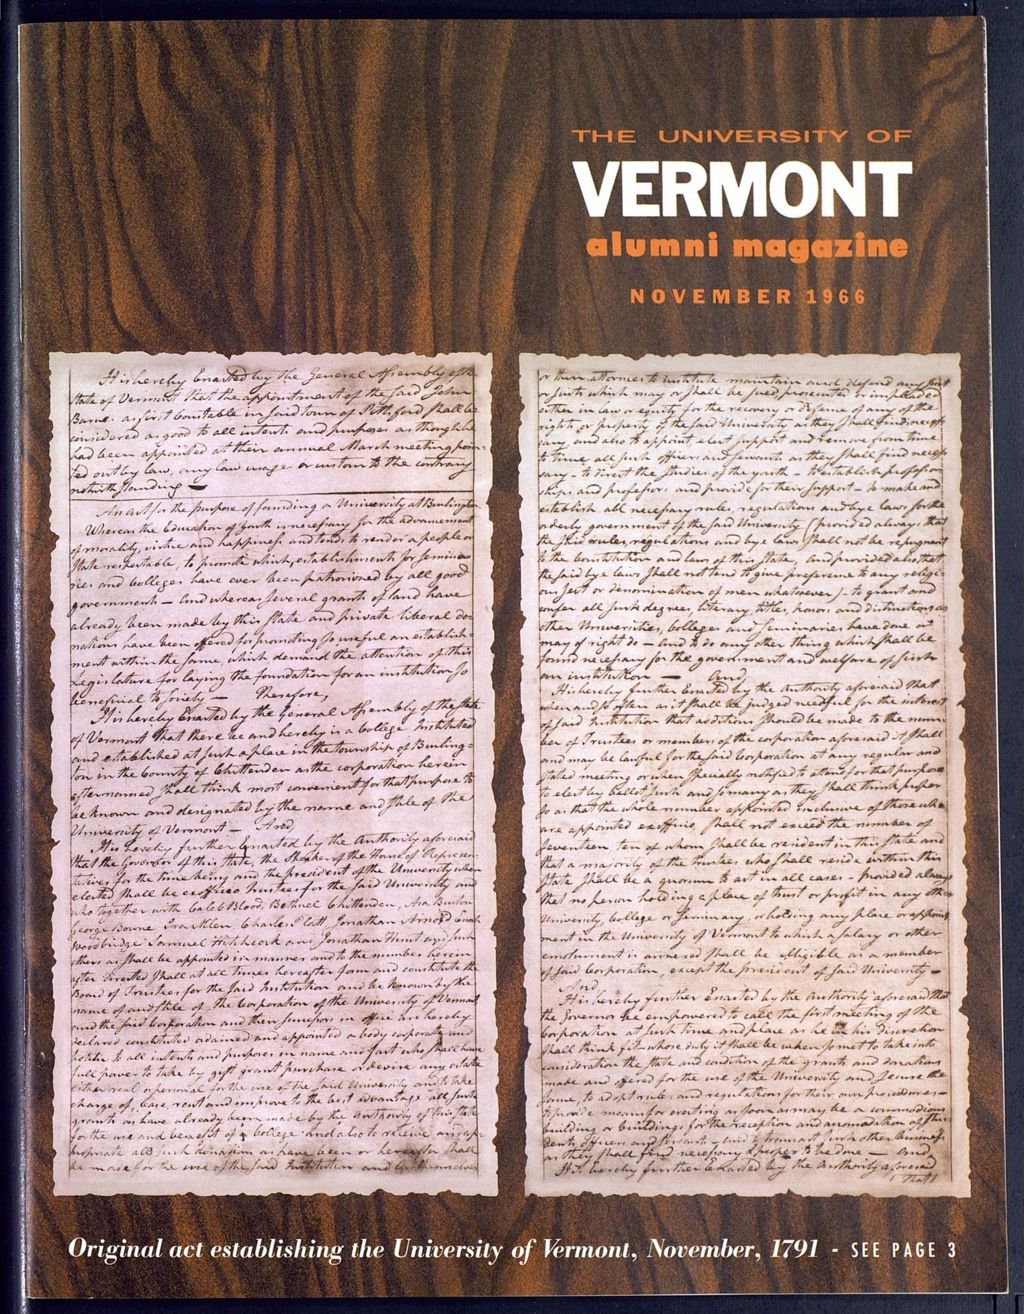 THE UNIVERSITY OF
VERMONT
alumni magazine
NOVEMBER 1966
It is hereby Enacted by the General Assembly of the
State of Vermont that the appointment of the said John
Barns as first Constable in said town of Pittsford shall be
considered as good to all intents and purposes as though he
had been appointed at their annual March meeting
out by law, any law usage or custom to the contrary
notwithstanding —
An act for the purpose of founding a University at Burlington
Whereas the Education of youth is necessary for the advancement
of morality, virtue and happiness and tends to render a people or
State respectable, to promote which, establishments for Semina-
ries and Colleges have ever been patronized by all good
governments — And whereas several grants of land have
already been made by this State and private liberal do-
nations have been offered for promoting so useful an establish-
ment within the same, which demand the attention of this
Legislature for laying the foundation for an institution so
beneficial to Society — Therefore,
It is hereby Enacted by the General Assembly of the State
of Vermont that there be and hereby is a College Instituted
and established at such a place in the township of Burling-
ton in the County of Chittenden as the corporation herein
after named shall think most convenient for that purpose to
be known and designated by the name and stile of the
University of Vermont — And,
It is hereby further Enacted by the Authority aforesaid
that the Governor of this State, the Speaker of the House of Represen-
tatives for the time being and the president of the University when
elected shall be ex officio trustees for the said University and
who together with Caleb Blood, Bethuel Chittenden, Asa Burton
George Bowne Ira Allen Charles Platt Jonathan Arnold Enoch
Woodbridge Samuel Hitchcock and Jonathan Hunt and such
others as shall be appointed in manner and to the number herein
after directed shall at all times hereafter form and constitute the
Board of Trustees for the said Institution and be known by the
name of and stile of the Corporation of the University of Vermont
and the said Corporation and their Successors in office are hereby
declared constituted ordained and appointed a body corporate and
politic to all intents and purposes in name and fact who shall have
full power to take by gift grant purchase or devise any estate
either real or personal for the use of the said University and to take
charge of, lease, rent and improve to the best advantage all such
grants as have already been made by the Authority of this State
for the use and benefit of a College and also to receive and ap-
propriate all such donations as have been or hereafter shall
be made for the use of the said Institution and by themselves
or their attornies to institute maintain and defend any suit
or suits which may or shall be sued, prosecuted or impleaded
either in law or equity for the recovery or defense of any of the
rights or property of the said University as they shall find
and also to appoint elect support and remove from time
to time all such officers and servants as they shall find
to direct the Studies of the youth — to establish
ships and professors and provide for their support — to make and
establish all necessary rules, regulations and bye laws for the
orderly government of the said University (provided always that
the said rules, regulations and bye laws shall not be repugnant
to the Constitution and laws of this State, and provided also that
the said bye laws shall not tend to give preference to any religi-
ous sect or denomination of men whatsoever) — to grant and
confer all such degrees, literary titles, honors and distinctions as
other Universities, Colleges and Seminaries have done or
may of right do — And to do any other thing which shall be
found necessary for the government and welfare of such
an institution — And
It is hereby further Enacted by the Authority aforesaid that
when and so often as it shall be judged needful for the interest
of said Institution that additions should be made to the num-
ber of Trustees or members of the corporation aforesaid it shall
and may be lawful for the said Corporation at any regular and
stated meeting or when specially notified to attend for that purpose
to elect by ballot such and so many as they shall think proper
so as that the whole number appointed inclusive of those who
are appointed ex officio, shall not exceed the number of
seventeen, ten of whom shall be resident in this State and
that a majority of the trustees who shall reside within this
State shall be a quorum to act in all cases — provided always
that no person holding a place of trust or profit in any other
University College or Seminary, or holding any place or appoint-
ment in the University of Vermont to which a salary or other
emolument is annexed shall be eligible as a member
of said Corporation, except the president of said University —
And
It is hereby further Enacted by the Authority aforesaid that
the Governor be empowered to call the first meeting of the
Corporation at such time and place as he in his discretion
shall think fit — whose duty it shall be when so met to take into
consideration the State and condition of the grants and donations
made and offered for the use of the University and secure the
same, to adopt rules and regulations for their own procedures —
to provide means for erecting as soon as may be a commodious
building or buildings for the reception and accomodation of Stu-
dents, officers and servants — and to transact such other business
as they shall find necessary & proper to be done — And
It is hereby further Enacted by the Authority aforesaid
that
Original act establishing the University of Vermont, November, 1791 - SEE PAGE 3